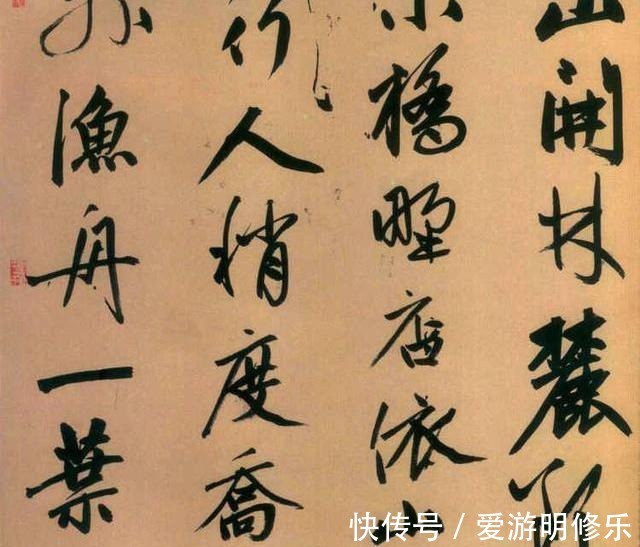 山開林麓
小橋野店依山
行人稍度喬
外漁舟一葉
快传号/爱游明修乐